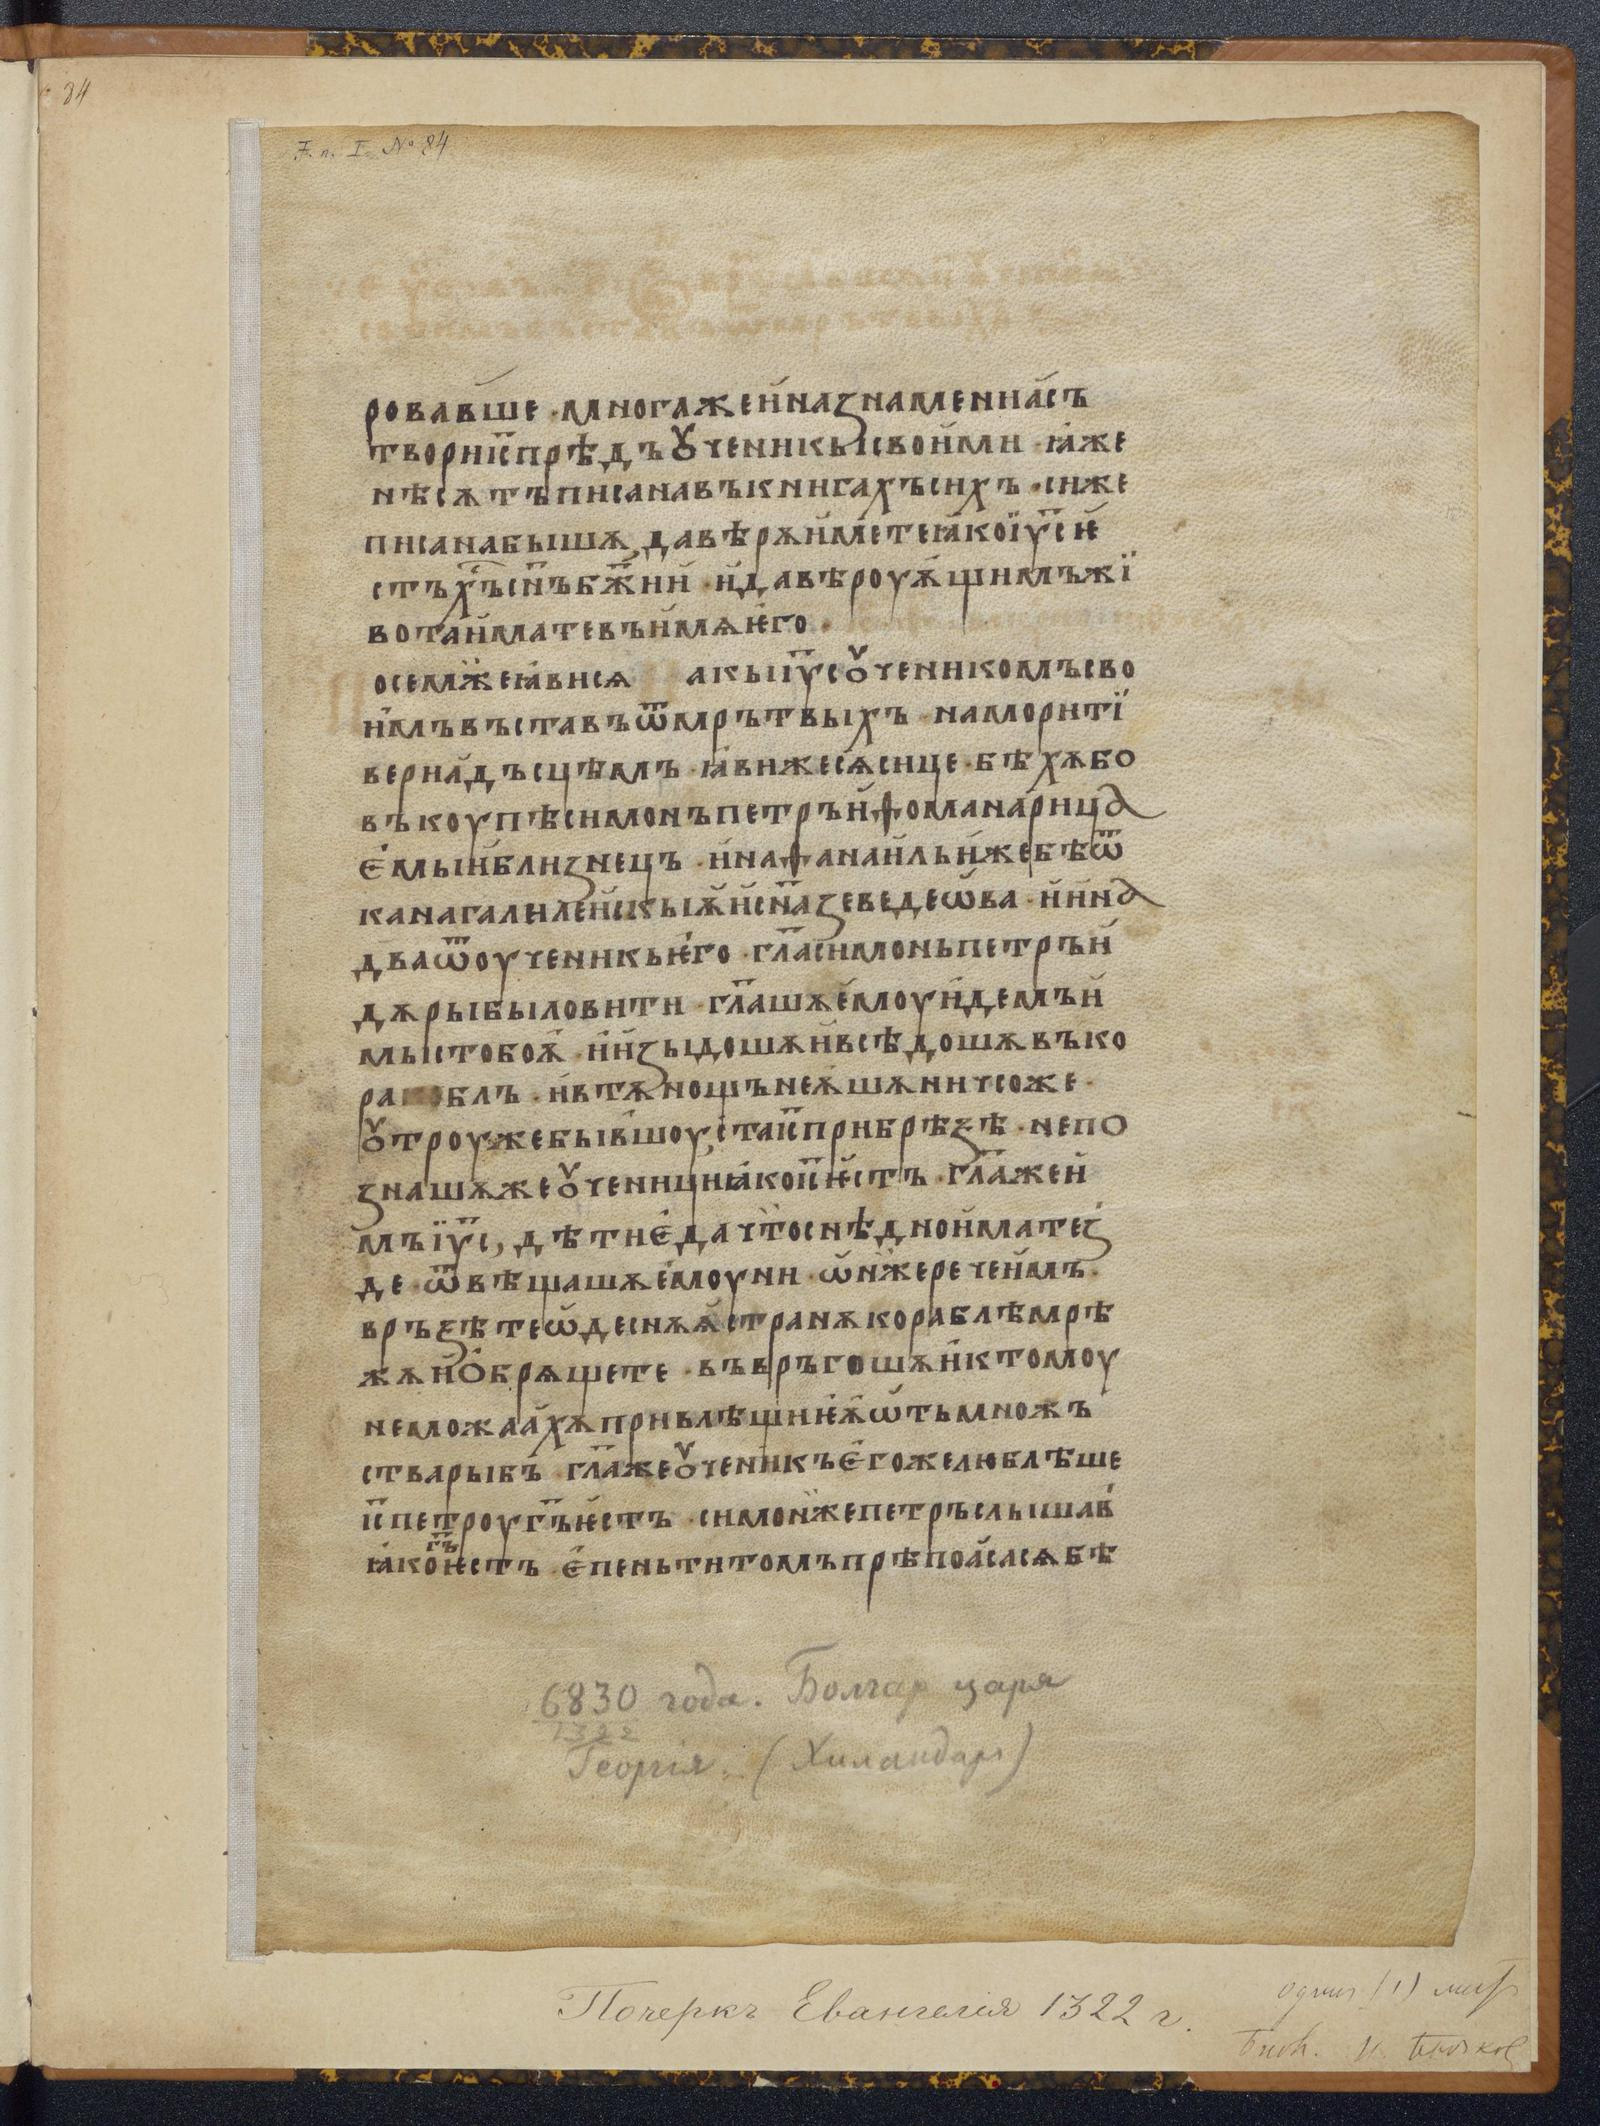 84
F. п. I. № 84
ровавше · многаже и҆на знамениа съ
твори і҃с прѣдъ ꙋченикы своими · ꙗже
нѣсѫтъ писана въ книгахъ сихъ · сиже
писана бышѫ, да вѣрѫ имете ꙗко і҃ус ѥ
стъ х҃ъ с҃нъ б҃жии · и да вѣроуѫщи мъжї
вота имате въ имѧ ѥго ·
осемже ꙗвисѧ акы і҃ус ꙋченикомъ сво
имъ въставъ ѿ мрътвыхъ · на мори тї
вернадъсцѣмъ · ꙗвижесѧ сице · бѣхѫ бо
въкоупѣ симонъ петръ и ѳома нарица
емыи близнецъ · и наѳанаиль иже бѣ ѿ
кана галилеискыѫ и с҃на зеведеѡва · и ина
два ѿ оученикь ѥго · г҃ла симонь петръ и
дѫ рыбы ловити · г҃лашѫ емоу идемъ и
мы с тобоѫ · и изыдошѫ и всѣдошѫ въ ко
ра бль · и в тѫ нощъ не ѫшѫ ничсоже ·
ꙋтроу же бывшоу, ста і҃с при брѣзѣ · непо
знашѫ же ꙋченици ꙗко і҃с ѥстъ · г҃ла же и
мъ і҃ус, дѣти еда что снѣдно имате з
де · ѿвѣщашѫ емоу ни · ѡн же рече имъ ·
връзѣте ѡ деснѫѫ странѫ кораблѣ мрѣ
жѫ и обрѧщете · въвръгошѫ и ктомоу
не можаахѫ привлѣщи ѥѫ ѿтъ множъ
ства рыбъ · г҃ла же ꙋченикъ егоже люблѣше
і҃с петроу г҃ъ ѥстъ · симон же петръ слышав
ꙗко г҃ъ ѥстъ · епеньтитомъ прѣпоасасѧ бѣ
6830 года. Болгар царя
1322
Георгія. (Хиландарь)
Почеркъ Евангелія 1322 г.
одинъ (1) листъ
Библ. И. Бычков